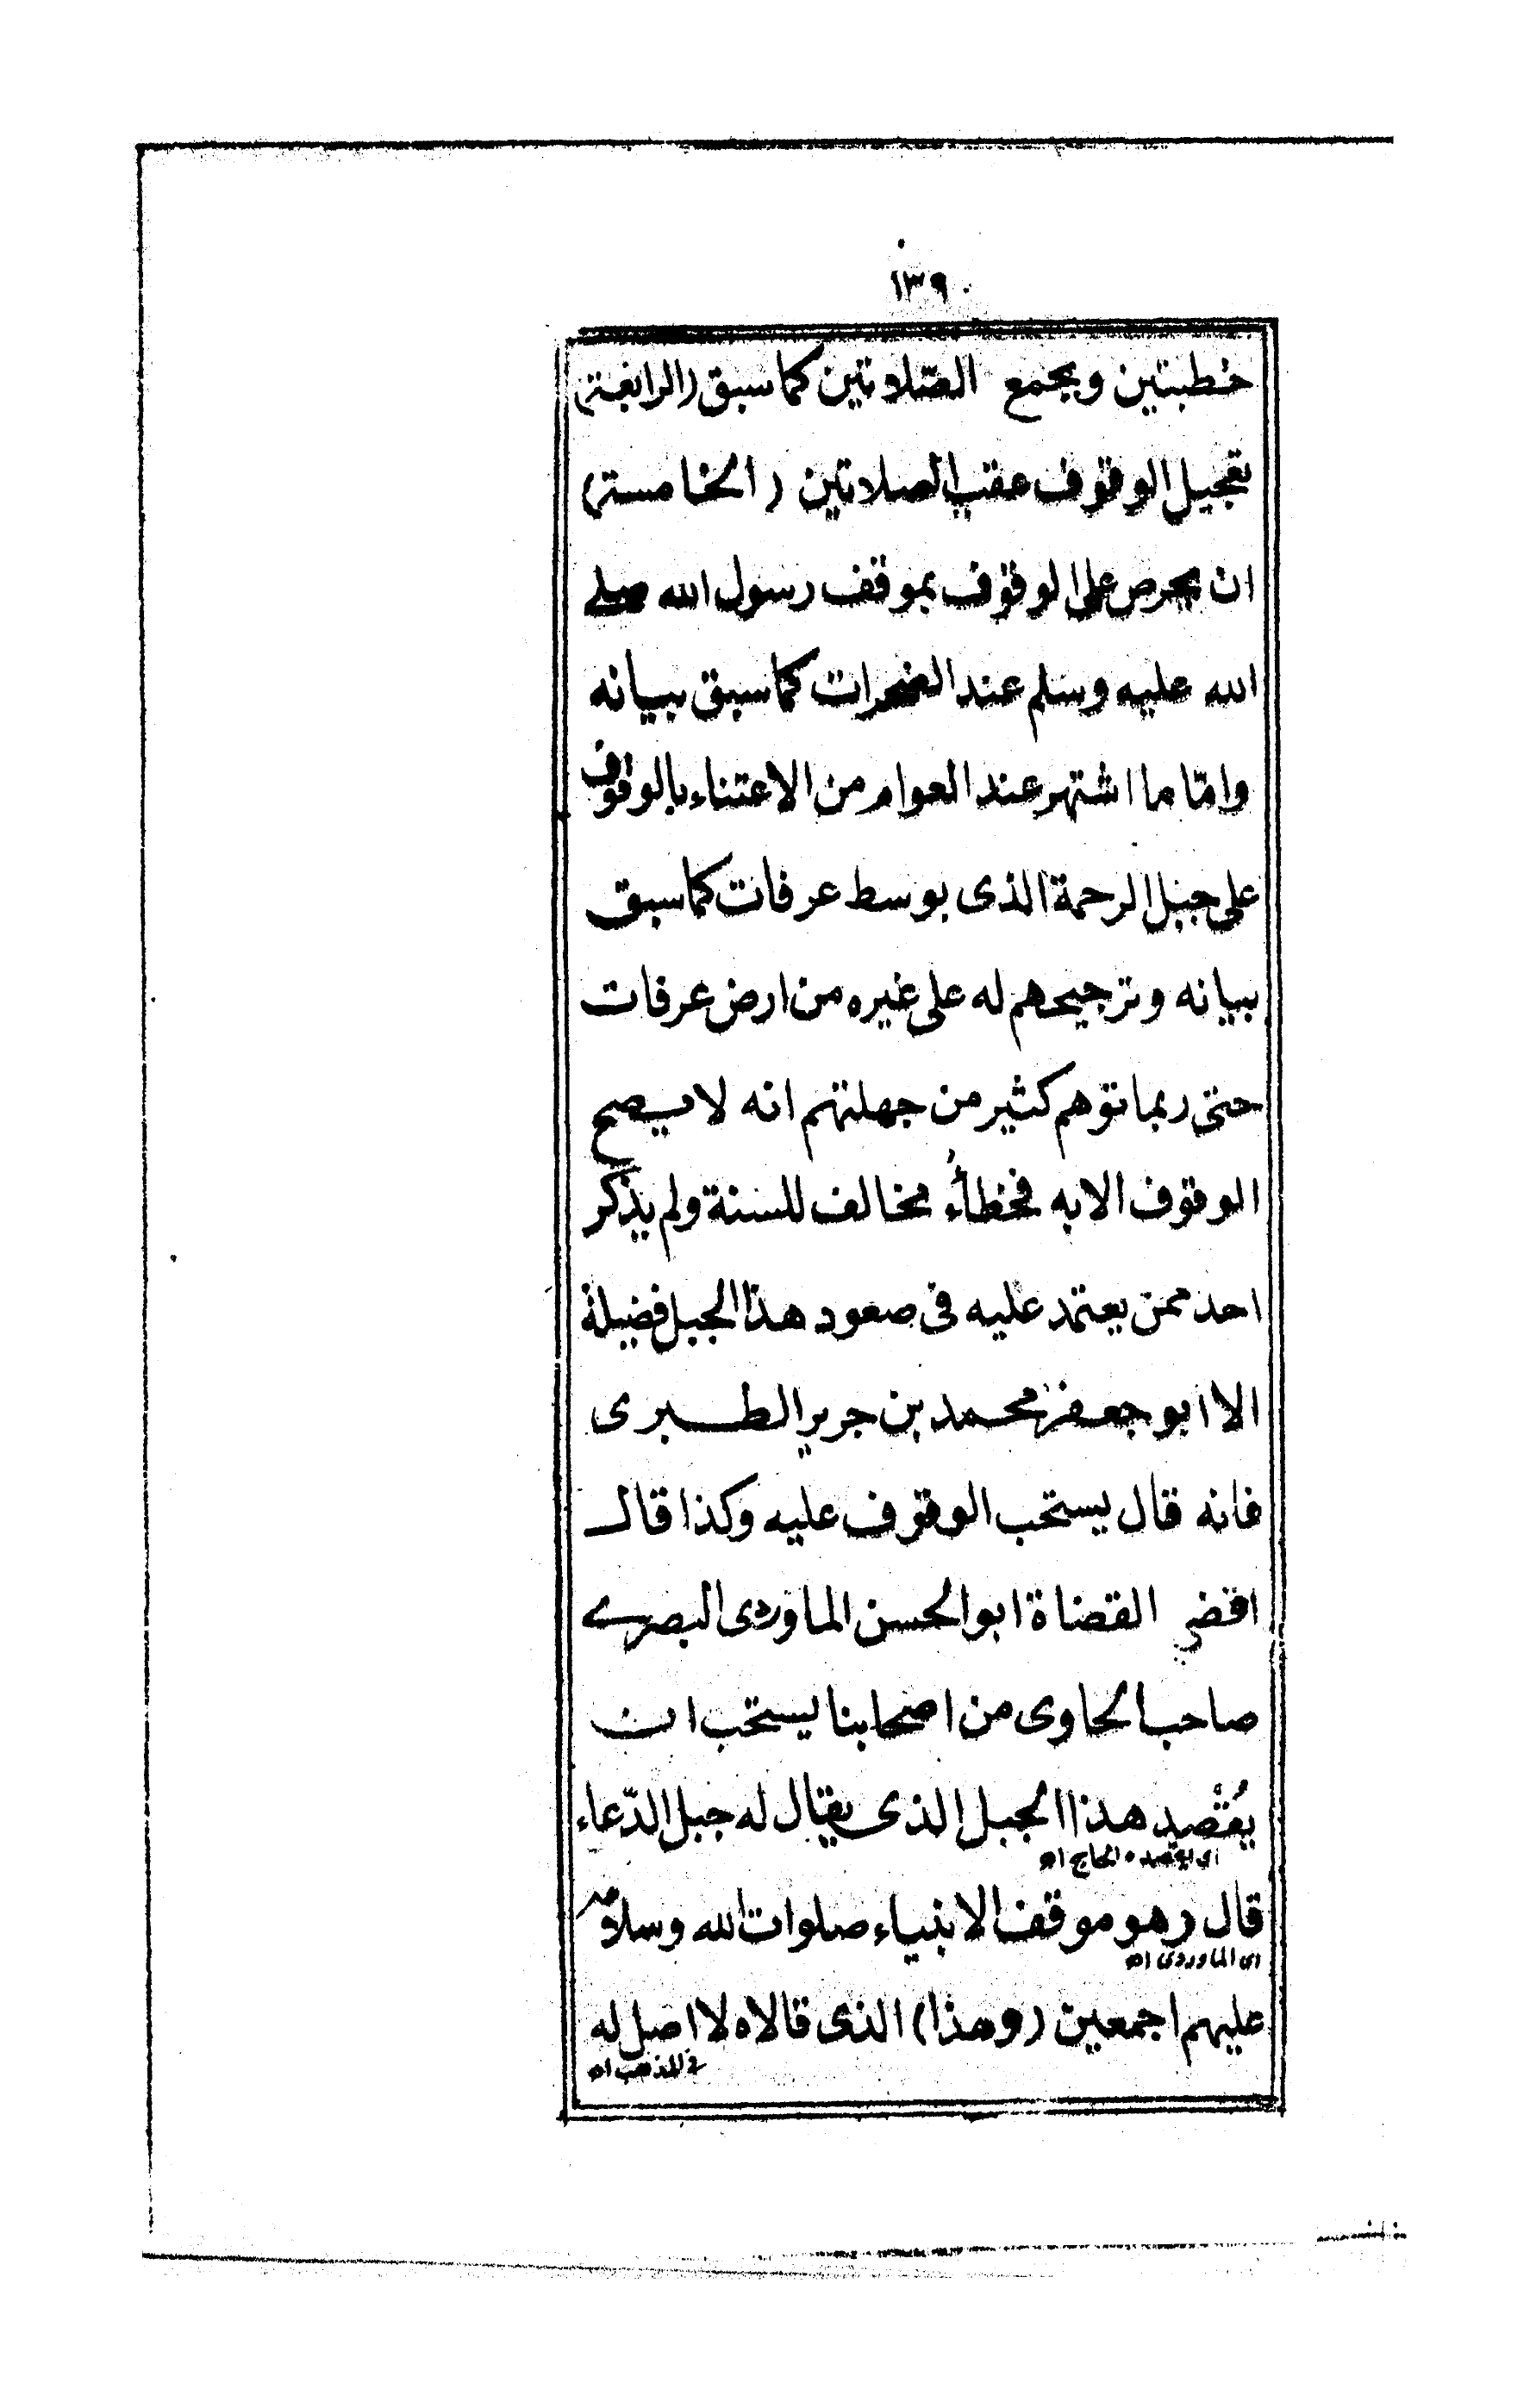 ١٣٩
خطبتين ويجمع الصّلاتين كما سبق (الرابعة)
تعجيل الوقوف عقب الصلاتين (الخامسة)
ان يحرص على الوقوف بموقف رسول الله صلے
الله عليه وسلم عند الصخرات كما سبق ببيانه
وامّا ما اشتهر عند العوام من الاعتناء بالوقوف
على جبل الرحمة الذى بوسط عرفات كما سبق
ببيانه وترجيحهم له على غيره من ارض عرفات
حتى ربما توهم كثير من جهلتهم انه لا يصح
الوقوف الا به فخطأُء مخالف للسنة ولم يذكر
احد ممن يعتمد عليه فى صعود هذا الجبل فضيلة
الا ابو جعفر محمد بن جرير الطبرى
فانه قال يستحب الوقوف عليه وكذا قال
اقضى القضاة ابو الحسن الماوردى البصرے
صاحب الحاوى من اصحابنا يستحب ان
يُقْصد هذا الجبل الذى يقال له جبل الدّعاء
اى يقصده الحاج اه
قال وهو موقف الانبياء صلوات الله وسلامه
اى الماوردى اه
عليهم اجمعين (وهذا) الذى قالاه لا اصل له
فى المذهب اه